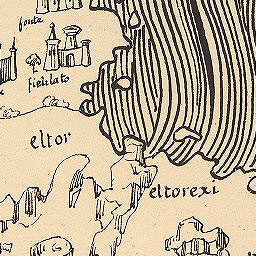 fonte
fieldato
eltor
eltorexi